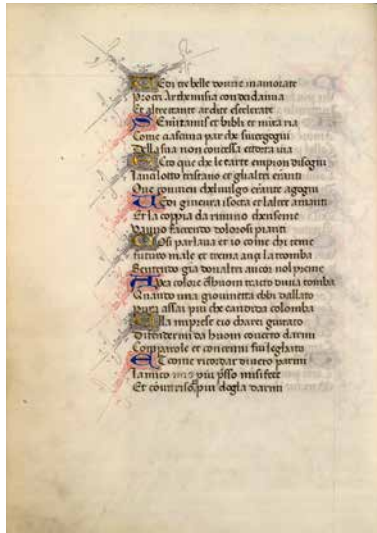 VEdi tre belle donne inamorate
Procri Arthemisia con deidamia
Et altretante ardite escelerate
SEmiramis et bibli et mirra ria
Come ciascuna par che sivergogni
Della sua non concessa et torta via
ECco que che le carte empion disogni
lancilotto tristano et glialtri erranti
Oue conuien chelvulgo errante agogni
VEdi gineura isotta et laltre amanti
Et la coppia darimino chenseme
Vanno faccendo dolorosi pianti
COsi parlaua et io come chi teme
futuro male et trema anzi la tromba
Sentendo gia dovaltri ancor nol preme
AVea colore dhuom tracto duna tomba
Quando una giouinetta ebbi dallato
Pura assai piu che candida colomba
ELla miprese etio charei giurato
Difendermi da huom coverto darmi
Conparole et concenni fui leghato
ET come ricordar diuero parmi
lamico mio piu p̄sso misifece
Et conun riso piu dogla darmi